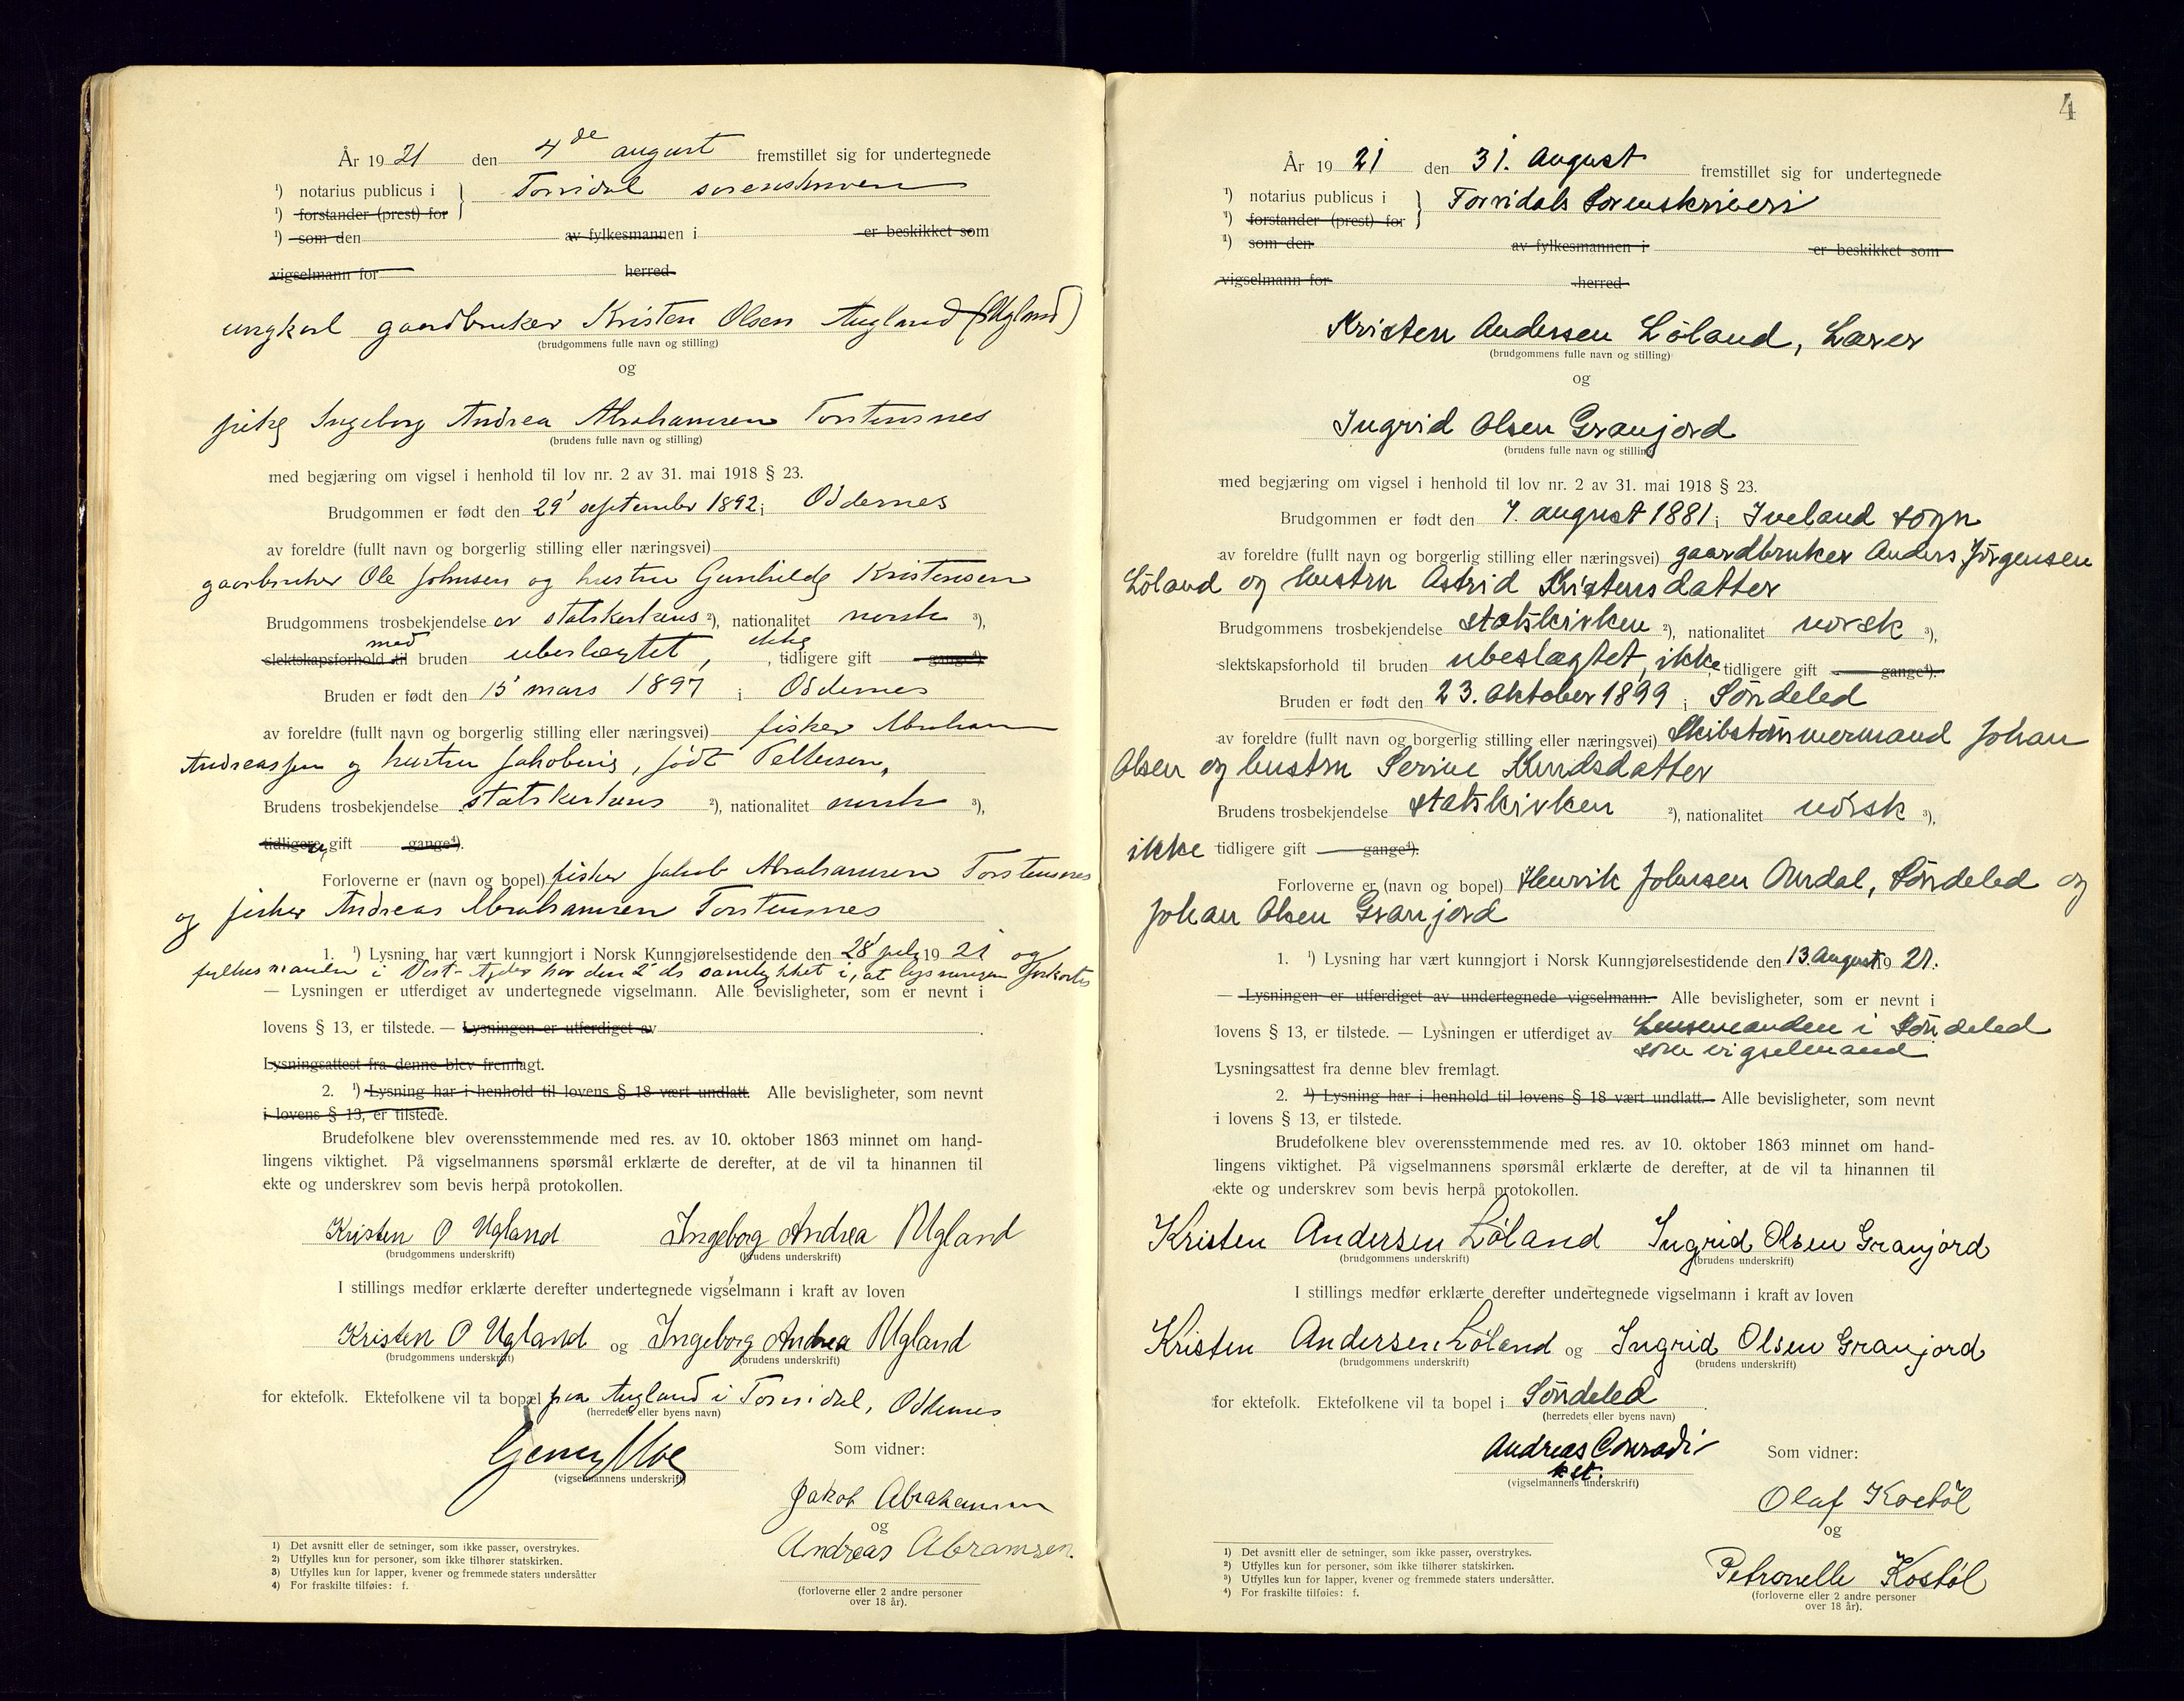 År 1921 den 4de august fremstillet sig for undertegnede
¹) notarius publicus i } Torridal sorenskriveri
¹) forstander (prest) for
¹) som den av fylkesmannen i er beskikket som
vigselmann for herred
ungkarl gaardbruker Kristen Olsen Augland (Ugland)
(brudgommens fulle navn og stilling)
og
pike Ingeborg Andrea Abrahamsen Torstensnes
(brudens fulle navn og stilling)
med begjæring om vigsel i henhold til lov nr. 2 av 31. mai 1918 § 23.
Brudgommen er født den 29' september 1892 i Oddernes
av foreldre (fullt navn og borgerlig stilling eller næringsvei)
gaardbruker Ole Johnsen og hustru Gunhilde Kristensen
Brudgommens trosbekjendelse er statskirkens ²), nationalitet norsk ³),
med ikke
slektskapsforhold til bruden ubeslægtet, , tidligere gift gange⁴)
Bruden er født den 15' mars 1897 i Oddernes
av foreldre (fullt navn og borgerlig stilling eller næringsvei) fisker Abraham
Andreassen og hustru Jakobine, født Tellefsen,
Brudens trosbekjendelse statskirkens ²), nationalitet norsk ³),
tidligere gift gange⁴).
Forloverne er (navn og bopel) fisker Jakob Abrahamsen Torstensnes
og fisker Andreas Abrahamsen Torstensnes
1. ¹) Lysning har vært kunngjort i Norsk Kunngjørelsestidende den 28' july 1921 og
fylkesmanden i Vest-Agder har den 2' ds samtykket i, at lysningen forkortes
— Lysningen er utferdiget av undertegnede vigselmann. Alle bevisligheter, som er nevnt i
lovens § 13, er tilstede. — Lysningen er utferdiget av .
Lysningsattest fra denne blev fremlagt.
2. ¹) Lysning har i henhold til lovens § 18 vært undlatt. Alle bevisligheter, som nevnt
i lovens § 13, er tilstede.
Brudefolkene blev overensstemmende med res. av 10. oktober 1863 minnet om hand-
lingens viktighet. På vigselmannens spørsmål erklærte de derefter, at de vil ta hinannen til
ekte og underskrev som bevis herpå protokollen.
Kristen O Ugland Ingeborg Andrea Ugland
(brudgommens underskrift) (brudens underskrift)
I stillings medfør erklærte derefter undertegnede vigselmann i kraft av loven
Kristen O Ugland og Ingeborg Andrea Ugland
(brudgommens underskrift) (brudens underskrift)
for ektefolk. Ektefolkene vil ta bopæl paa Augland i Torridal, Oddernes
(herredets eller byens navn)
Som vidner:
(vigselmannens underskrift)
Jakob Abrahamsen
og
Andreas Abramsen.
(forloverne eller 2 andre personer
over 18 år).
1) Det avsnitt eller de setninger, som ikke passer, overstrykes.
2) Utfylles kun for personer, som ikke tilhører statskirken.
3) Utfylles kun for lapper, kvener og fremmede staters undersåtter
4) For fraskilte tilføies: f.
4
År 1921 den 31. August fremstillet sig for undertegnede
¹) notarius publicus i } Torridals Sorenskriveri
¹) forstander (prest) for
¹) som den av fylkesmannen i er beskikket som
vigselmann for herred
Kristen Andersen Löland, Lærer
(brudgommens fulle navn og stilling)
og
Ingrid Olsen Granjord
(brudens fulle navn og stilling)
med begjæring om vigsel i henhold til lov nr. 2 av 31. mai 1918 § 23.
Brudgommen er født den 7. august 1881 i Iveland sogn
av foreldre (fullt navn og borgerlig stilling eller næringsvei) gaardbruker Anders Jörgensen
Löland og hustru Astrid Kristensdatter
Brudgommens trosbekjendelse statskirken ²), nationalitet norsk ³),
slektskapsforhold til bruden ubeslægtet, ikke tidligere gift gange⁴).
Bruden er født den 23. Oktober 1899 i Söndeled
av foreldre (fullt navn og borgerlig stilling eller næringsvei) Skibstömmermand Johan
Olsen og hustru Serine Knudsdatter
Brudens trosbekjendelse statskirken ²), nationalitet norsk ³),
ikke tidligere gift gange⁴).
Forloverne er (navn og bopel) Henrik Johnsen Omdal, Söndeled og
Johan Olsen Granjord
1. ¹) Lysning har vært kunngjort i Norsk Kunngjørelsestidende den 13. August 1921.
— Lysningen er utferdiget av undertegnede vigselmann. Alle bevisligheter, som er nevnt i
lovens § 13, er tilstede. — Lysningen er utferdiget av Lensmanden i Söndeled
som vigselmand
Lysningsattest fra denne blev fremlagt.
2. ¹) Lysning har i henhold til lovens § 18 vært undlatt. Alle bevisligheter, som nevnt
i lovens § 13, er tilstede.
Brudefolkene blev overensstemmende med res. av 10. oktober 1863 minnet om hand-
lingens viktighet. På vigselmannens spørsmål erklærte de derefter, at de vil ta hinannen til
ekte og underskrev som bevis herpå protokollen.
Kristen Andersen Løland Ingrid Olsen Granjord
(brudgommens underskrift) (brudens underskrift)
I stillings medfør erklærte derefter undertegnede vigselmann i kraft av loven
Kristen Andersen Løland og Ingrid Olsen Granjord
(brudgommens underskrift) (brudens underskrift)
for ektefolk. Ektefolkene vil ta bopel i Söndeled .
(herredets eller byens navn)
Andreas Conradi Som vidner:
kst.
(vigselmannens underskrift)
Olaf Kostöl
og
Petronelle Kostöl
(forloverne eller 2 andre personer
over 18 år).
¹) Det avsnitt eller de setninger, som ikke passer, overstrykes.
²) Utfylles kun for personer, som ikke tilhører statskirken.
³) Utfylles kun for lapper, kvener og fremmede staters undersåtter.
⁴) For fraskilte tilføies: f.